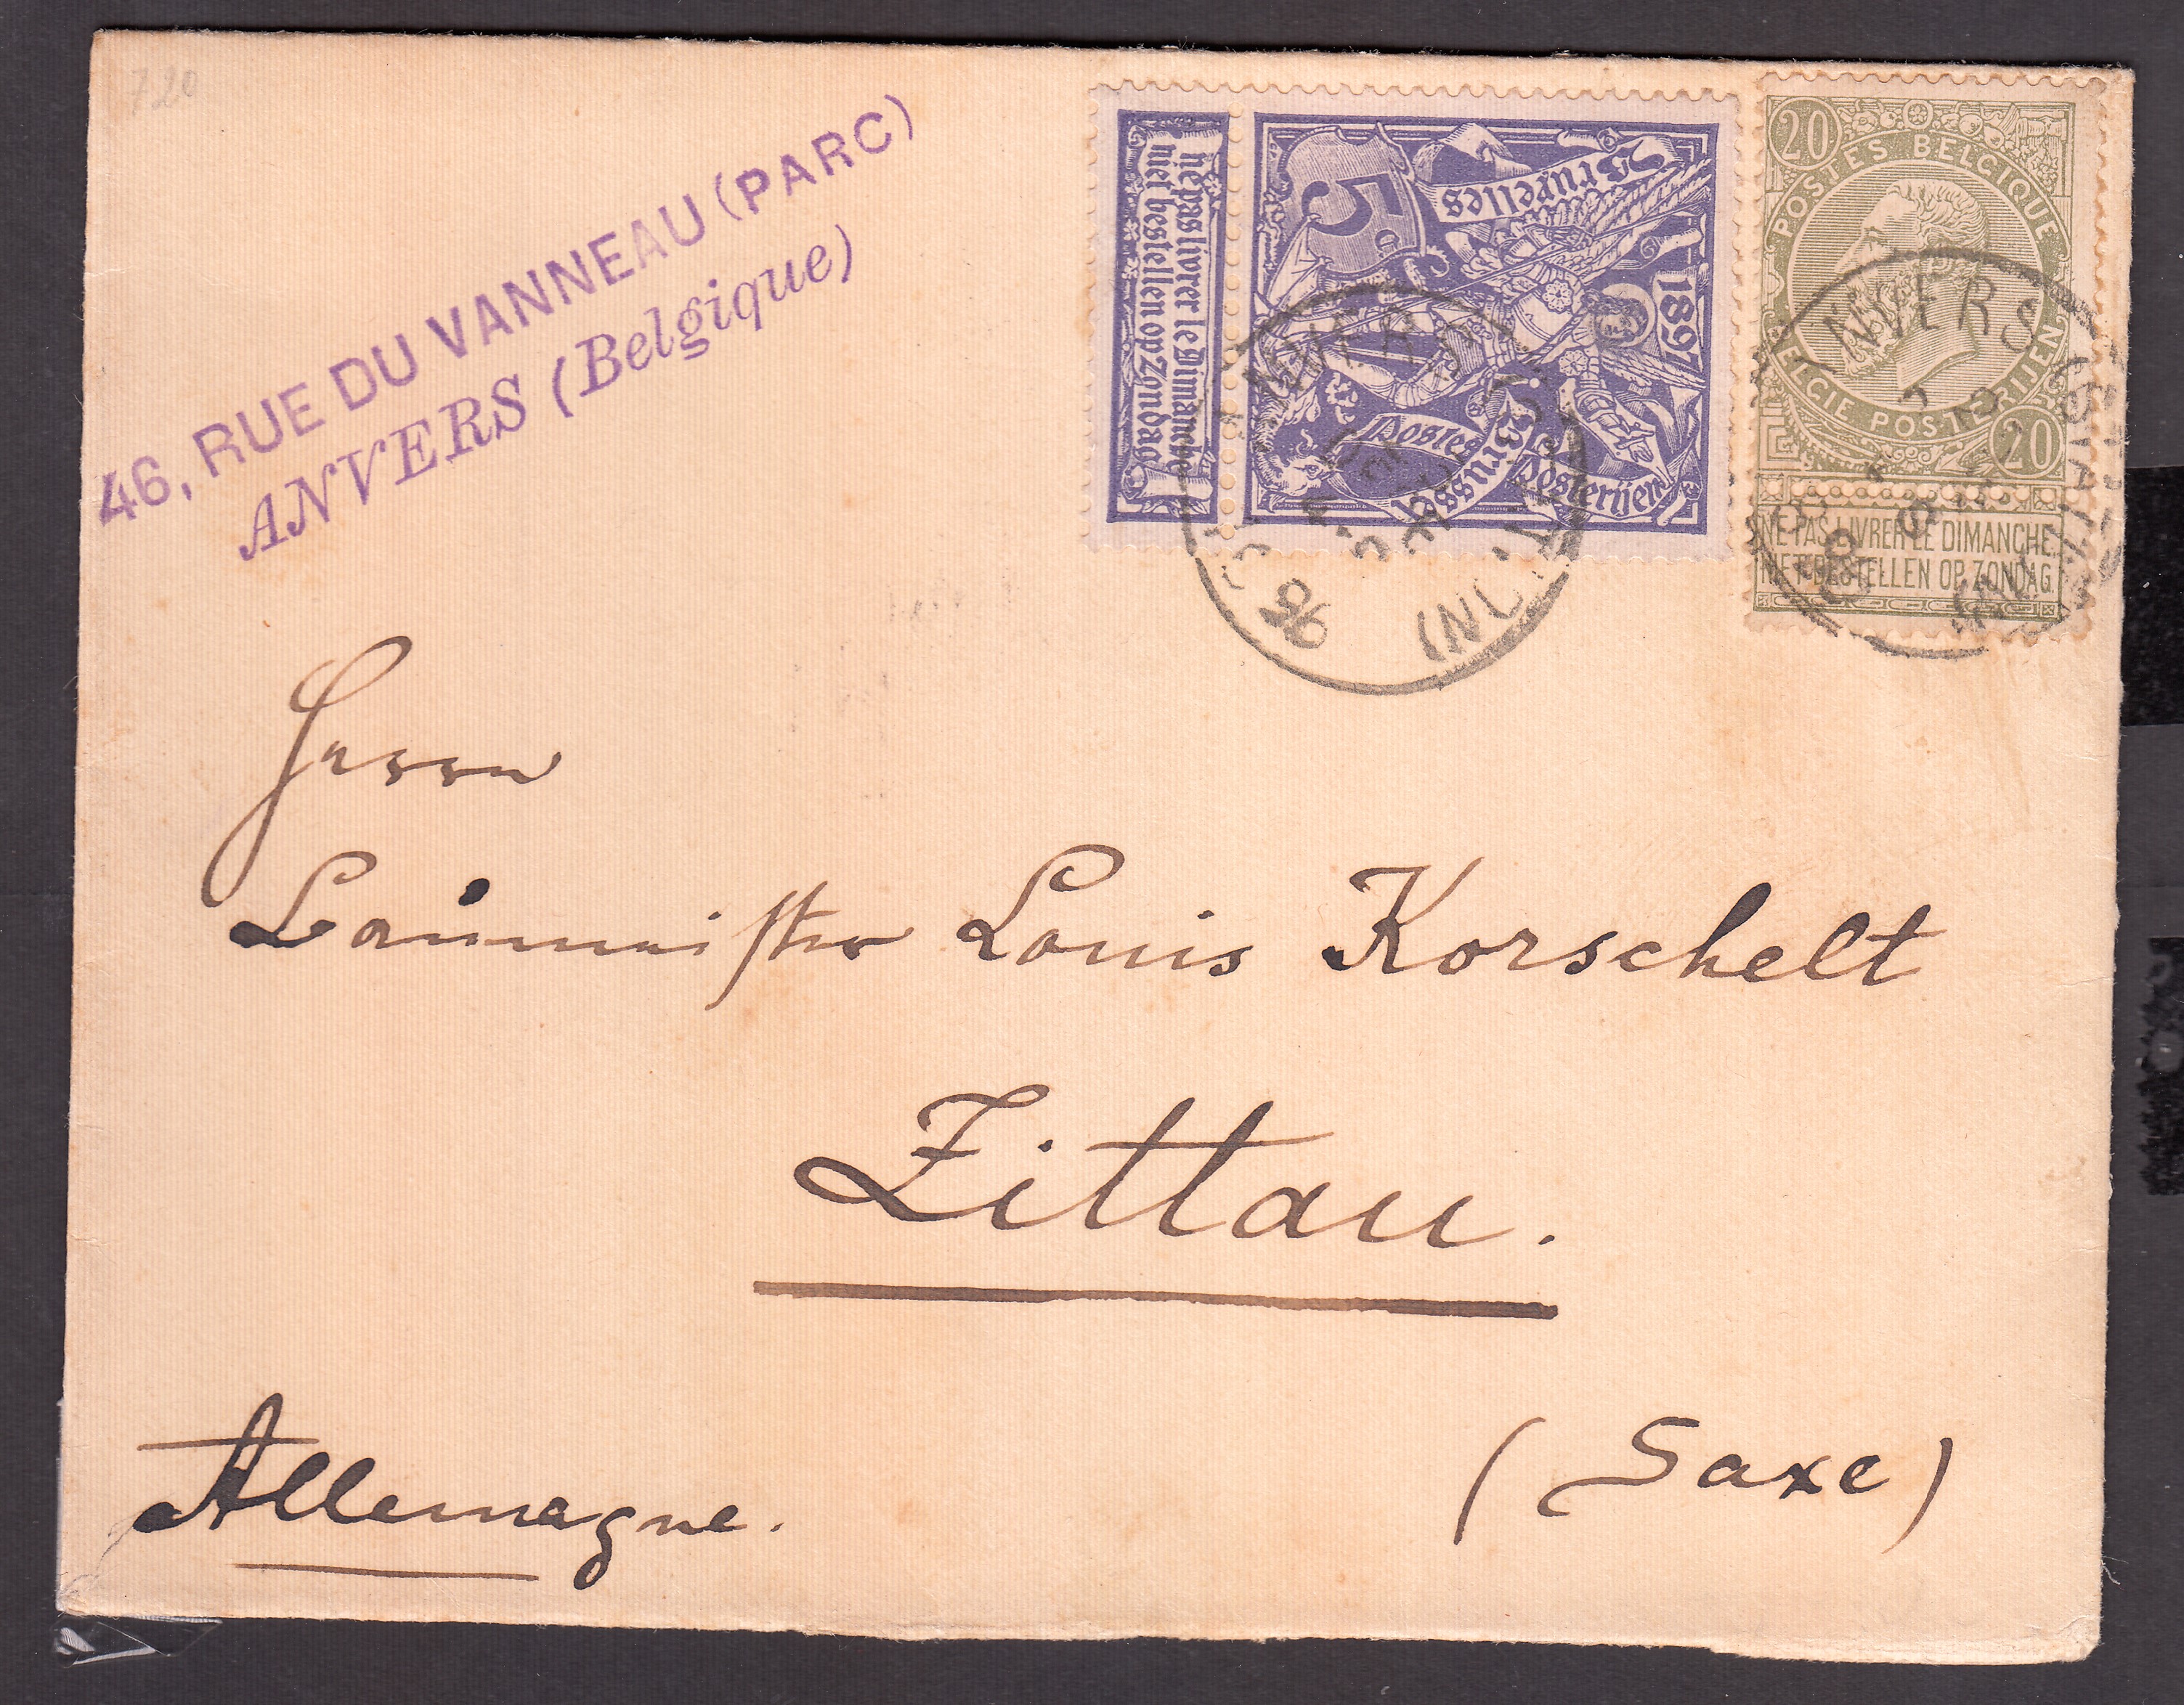 720
46, RUE DU VANNEAU (PARC)
ANVERS (Belgique)
ne pas livrer le Dimanche
niet bestellen op Zondag
5
Bruxelles
1897
Brussel
Postes
Posterijen
20
POSTES BELGIQUE
BELGIE POSTERIJEN
20
NE PAS LIVRER LE DIMANCHE
NIET BESTELLEN OP ZONDAG
ANVERS
96
ANVERS (STATION)
Herrn
Baumeister Louis Korschelt
Zittau.
(Saxe)
Allemagne.